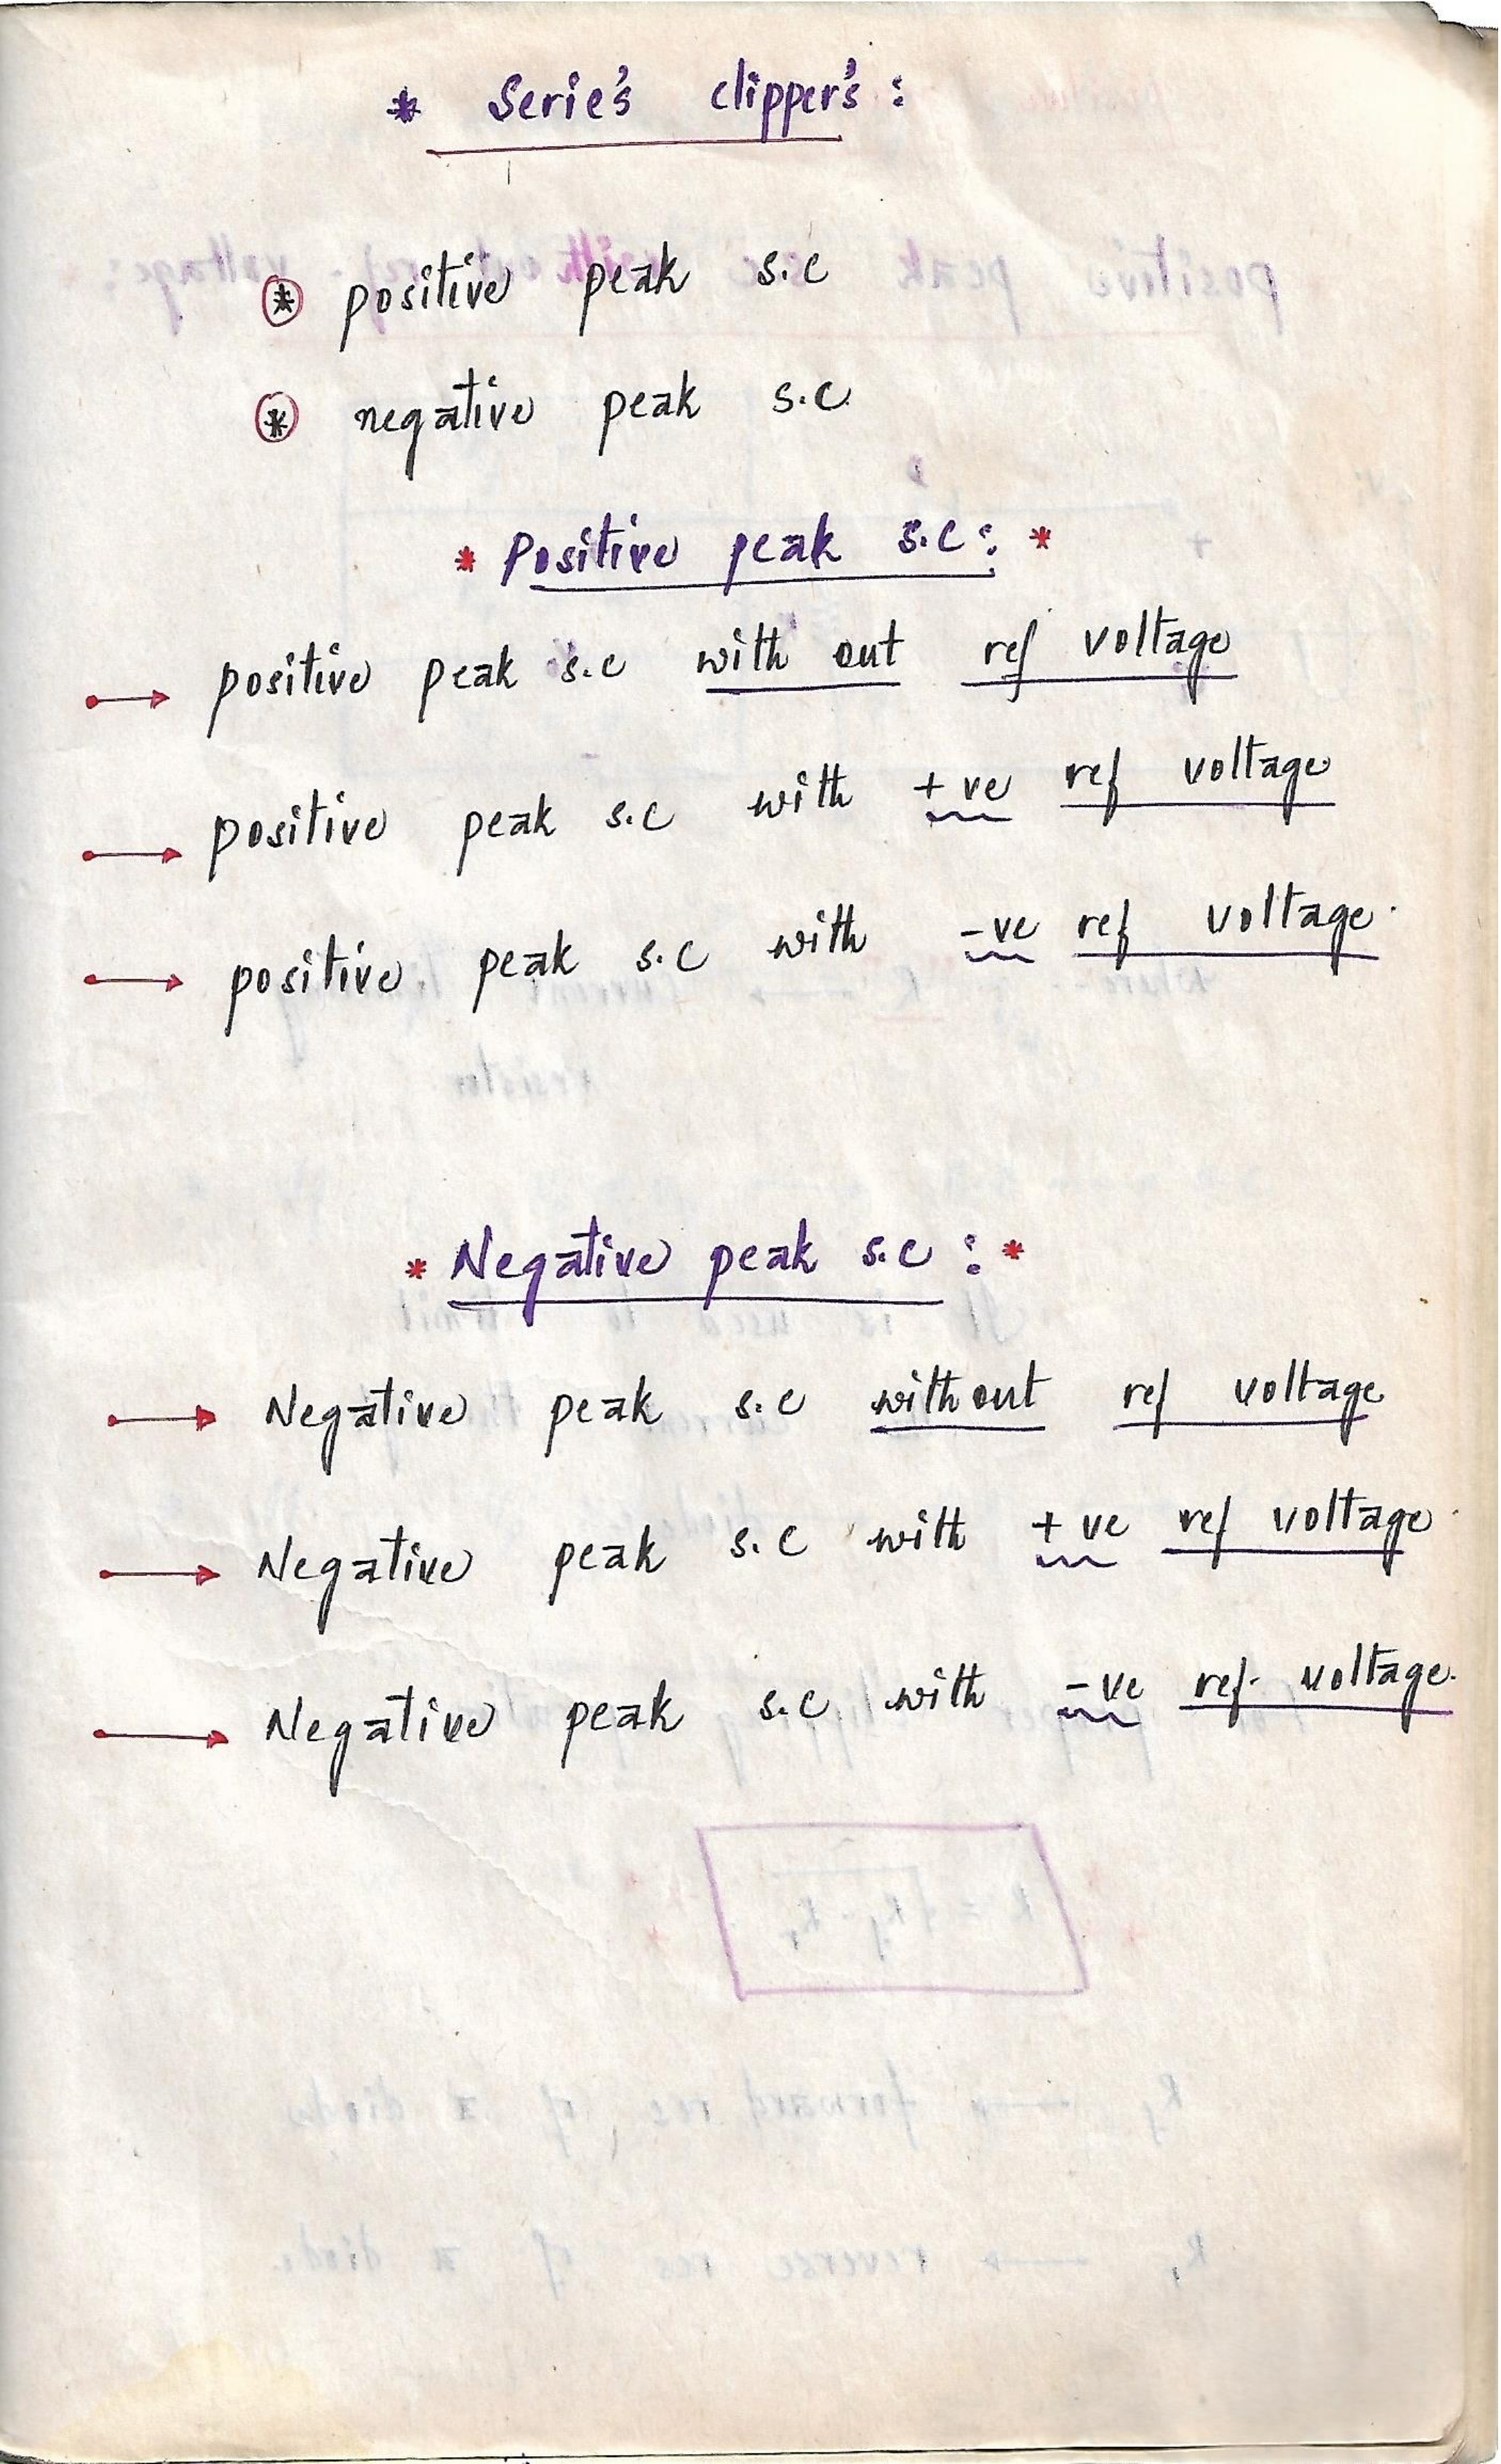 * Serie's clipper's :
* positive peak s.c
* negative peak s.c
* Positive peak s.c : *
→ positive peak s.c with out ref voltage
→ positive peak s.c with +ve ref voltage
→ positive peak s.c with -ve ref voltage.
* Negative peak s.c : *
→ Negative peak s.c without ref voltage
→ Negative peak s.c with +ve ref voltage
→ Negative peak s.c with -ve ref. voltage.